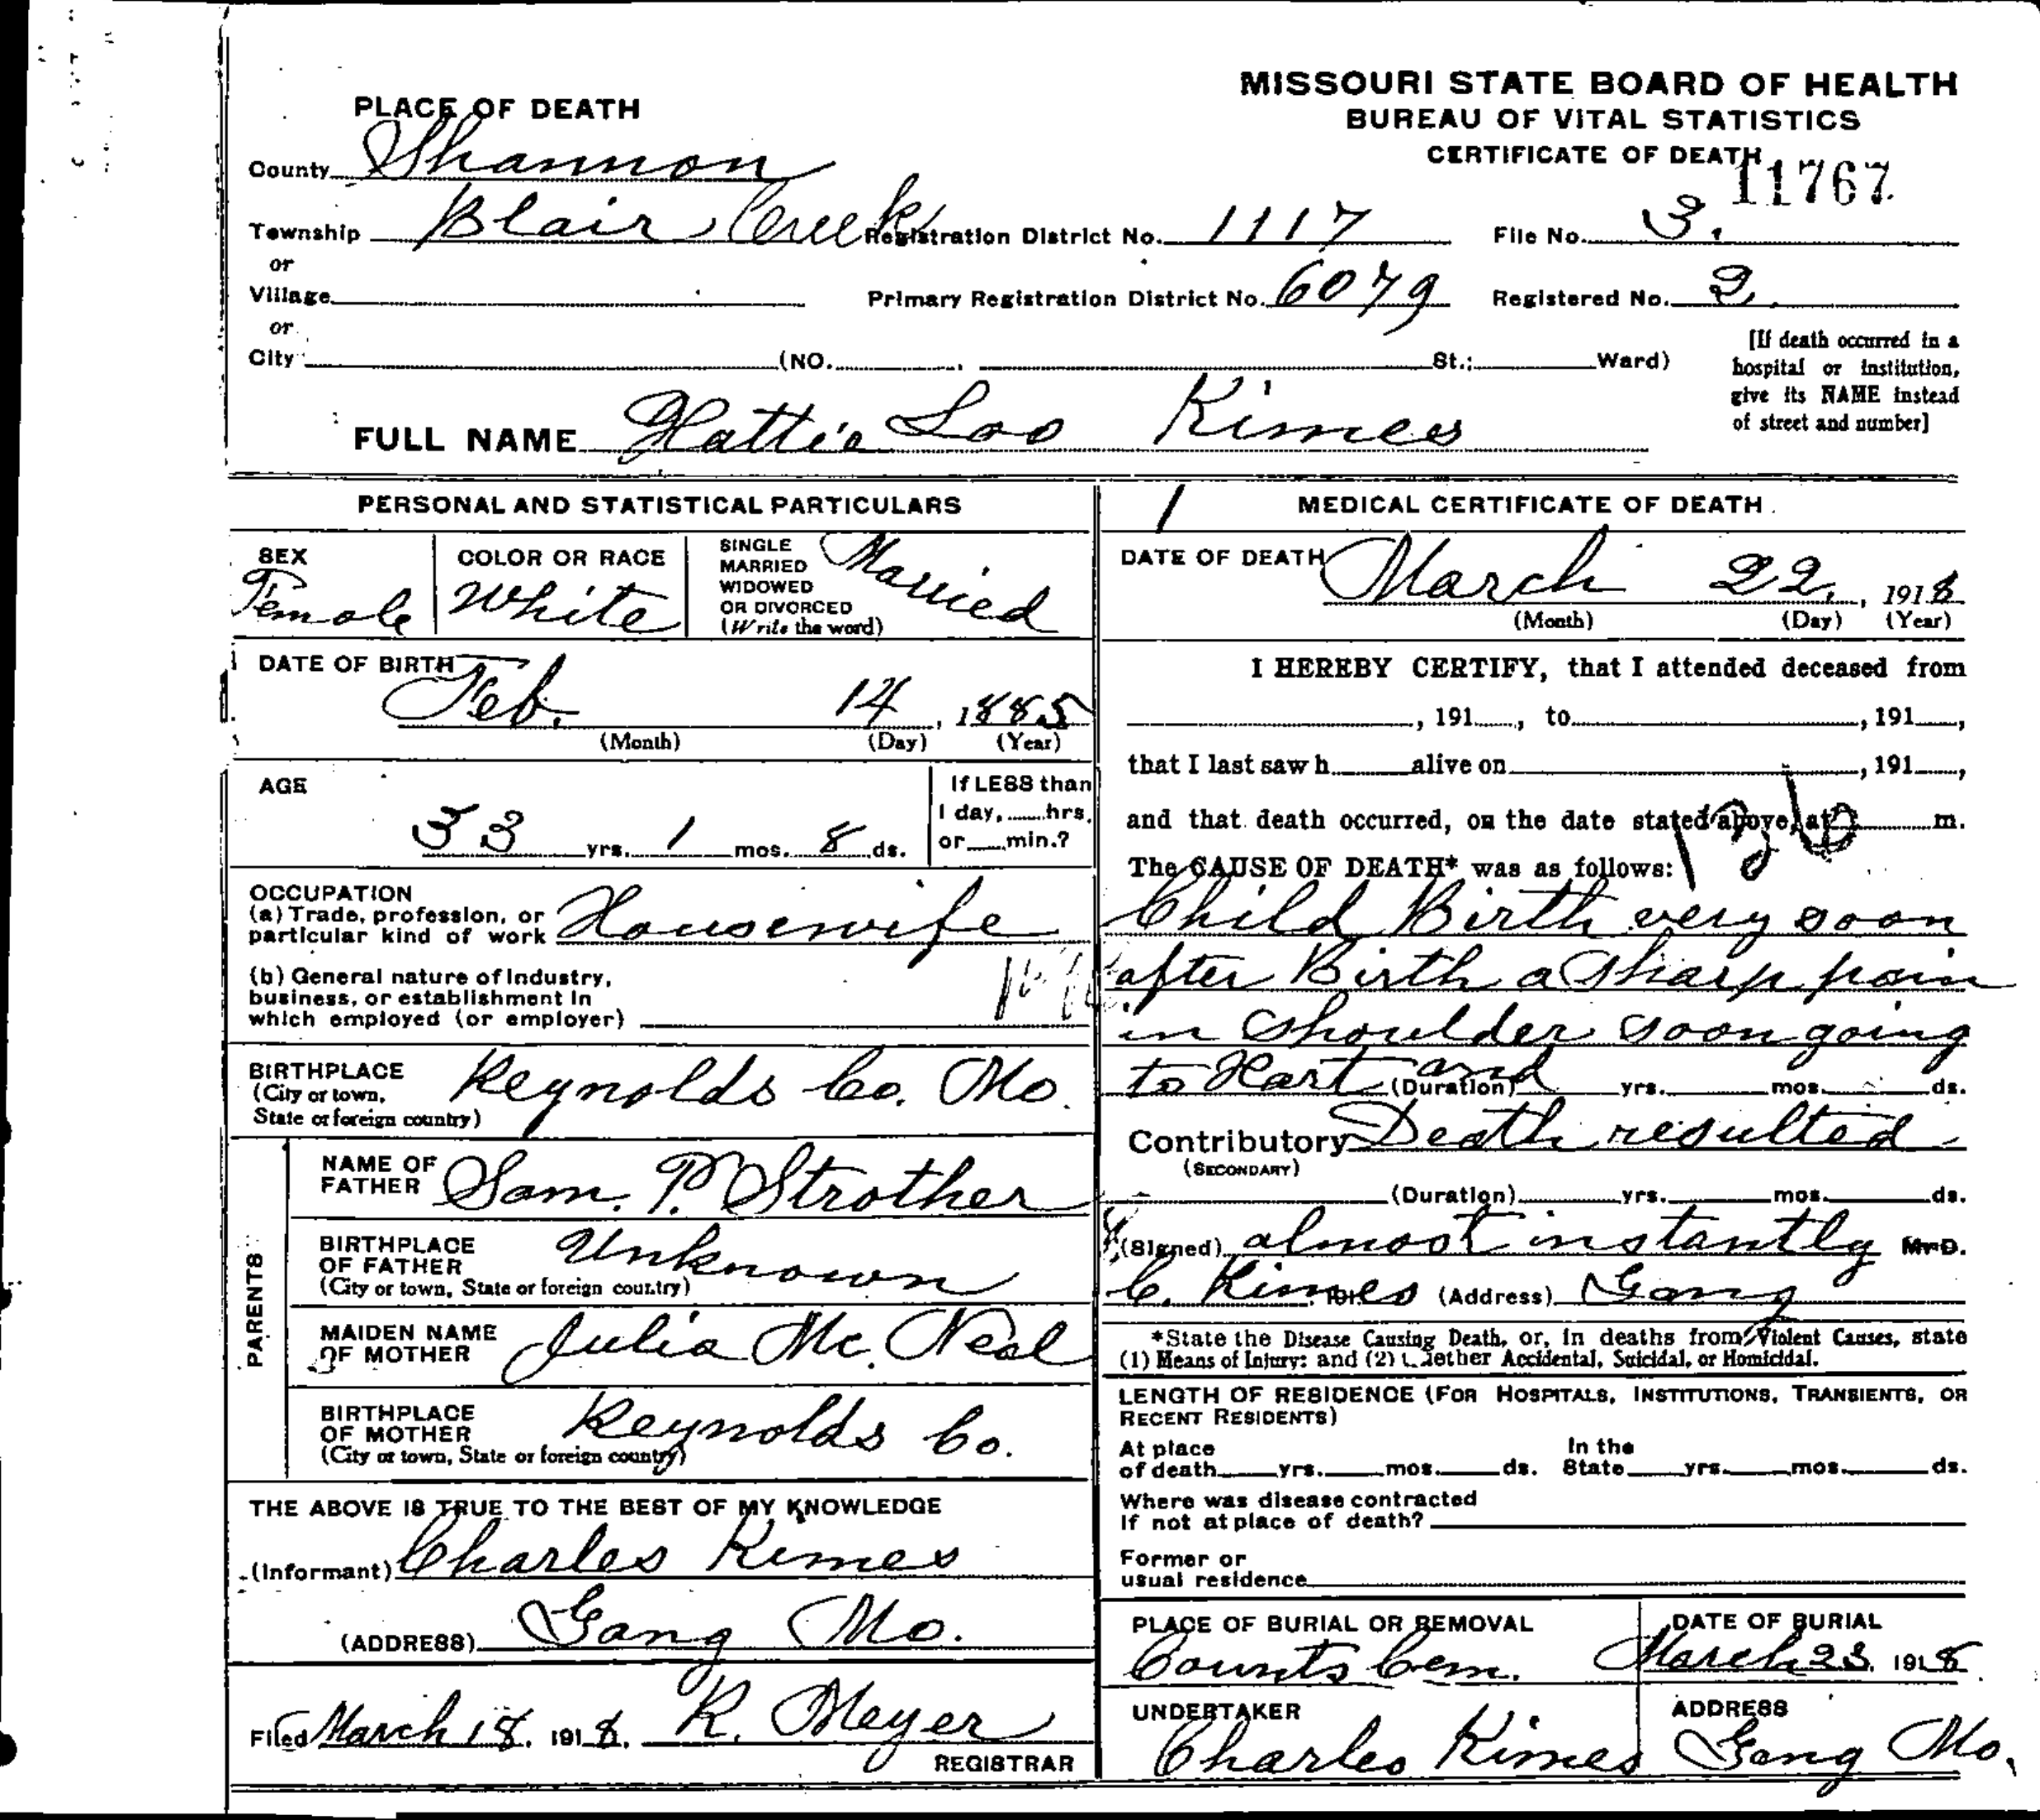 MISSOURI STATE BOARD OF HEALTH
BUREAU OF VITAL STATISTICS
CERTIFICATE OF DEATH
11767
PLACE OF DEATH
County Shannon
Township Blair Creek Registration District No. 1117 File No. 3.
or
Village Primary Registration District No. 6079 Registered No. 2
or
City (NO. St.; Ward)
[If death occurred in a
hospital or institution,
give its NAME instead
of street and number]
FULL NAME Hattie Loo Kimes
PERSONAL AND STATISTICAL PARTICULARS
SEX
Female
COLOR OR RACE
White
SINGLE
MARRIED
WIDOWED
OR DIVORCED
(Write the word)
Married
DATE OF BIRTH
Feb. 14, 1885
(Month) (Day) (Year)
AGE
33 yrs. 1 mos. 8 ds.
If LESS than
1 day, hrs.
or min.?
OCCUPATION
(a) Trade, profession, or
particular kind of work Housewife
(b) General nature of Industry,
business, or establishment in
which employed (or employer)
BIRTHPLACE
(City or town,
State or foreign country)
Reynolds Co. Mo.
PARENTS
NAME OF
FATHER Sam. P. Strother
BIRTHPLACE
OF FATHER
(City or town, State or foreign country)
Unknown
MAIDEN NAME
OF MOTHER Julia Mc. Neal
BIRTHPLACE
OF MOTHER
(City or town, State or foreign country)
Reynolds Co.
THE ABOVE IS TRUE TO THE BEST OF MY KNOWLEDGE
(Informant) Charles Kimes
(ADDRESS) Gang Mo.
Filed March 18, 1918, R. Meyer
REGISTRAR
1
MEDICAL CERTIFICATE OF DEATH
DATE OF DEATH March 22, 1918
(Month) (Day) (Year)
I HEREBY CERTIFY, that I attended deceased from
, 191 , to , 191 ,
that I last saw h alive on , 191 ,
and that death occurred, on the date stated above, at m.
The CAUSE OF DEATH* was as follows:
Child Birth very soon
after Birth a sharp pain
in shoulder soon going
to Hart and (Duration) yrs. mos. ds.
Contributory Death resulted
(SECONDARY)
(Duration) yrs. mos. ds.
(Signed) almost instantly M.D.
C. Kimes (Address) Gang
*State the Disease Causing Death, or, in deaths from Violent Causes, state
(1) Means of Injury; and (2) Whether Accidental, Suicidal, or Homicidal.
LENGTH OF RESIDENCE (FOR HOSPITALS, INSTITUTIONS, TRANSIENTS, OR
RECENT RESIDENTS)
At place
of death yrs. mos. ds.
In the
State yrs. mos. ds.
Where was disease contracted
If not at place of death?
Former or
usual residence
PLACE OF BURIAL OR REMOVAL
Counts Cem.
DATE OF BURIAL
March 23, 1918
UNDERTAKER
Charles Kimes
ADDRESS
Gang Mo.